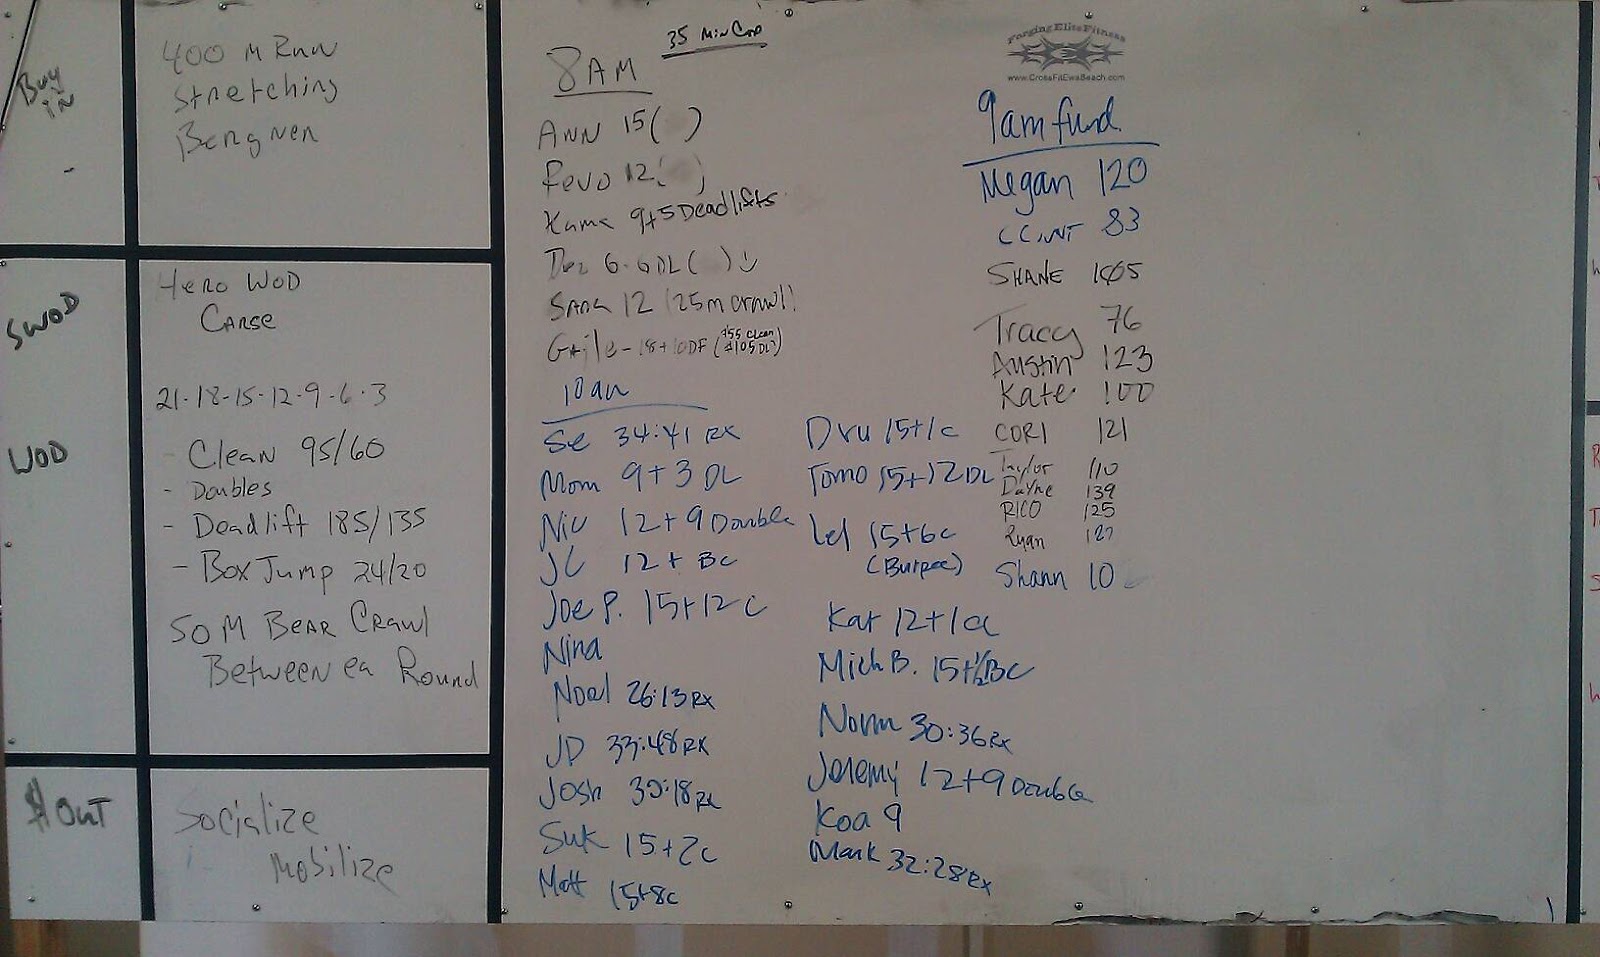 Buy
in
400 m Run
Stretching
Bergner
SWOD
WOD
Hero WOD
Carse
21-18-15-12-9-6-3
- Clean 95/60
- Doubles
- Deadlift 185/135
- Box Jump 24/20
50 M Bear Crawl
Between ea Round
$ Out
Socialize
Mobilize
35 Min Cap
8AM
Ann 15 ( )
Revo 12 ( )
Kama 9+5 Deadlifts
Dez 6-6DL ( )
Sara 12 (25m crawl)
Gaile - 18+10DF (#55 Clean
#105 DL)
10am
Se 34:41 RX
Mom 9+3 DL
Nic 12+9 Double
JC 12+BC
Joe P. 15+12C
Nina
Noel 26:13 RX
JD 33:48 RX
Josh 30:18 RX
Suk 15+2C
Matt 15+8C
Dru 15+1C
Tomo 15+12DL
Lel 15+6C
(Burpee)
Kat 12+1CL
Mich B. 15+1/2BC
Norm 30:36 RX
Jeremy 12+9 Double
Koa 9
Mark 32:28 RX
Forging Elite Fitness
www.CrossFitEwaBeach.com
9am fund.
Megan 120
83
Shane 105
Tracy 76
Austin 123
Kate 100
Cori 121
Taylor 110
Dayne 139
Rico 125
Ryan 127
Shann 10